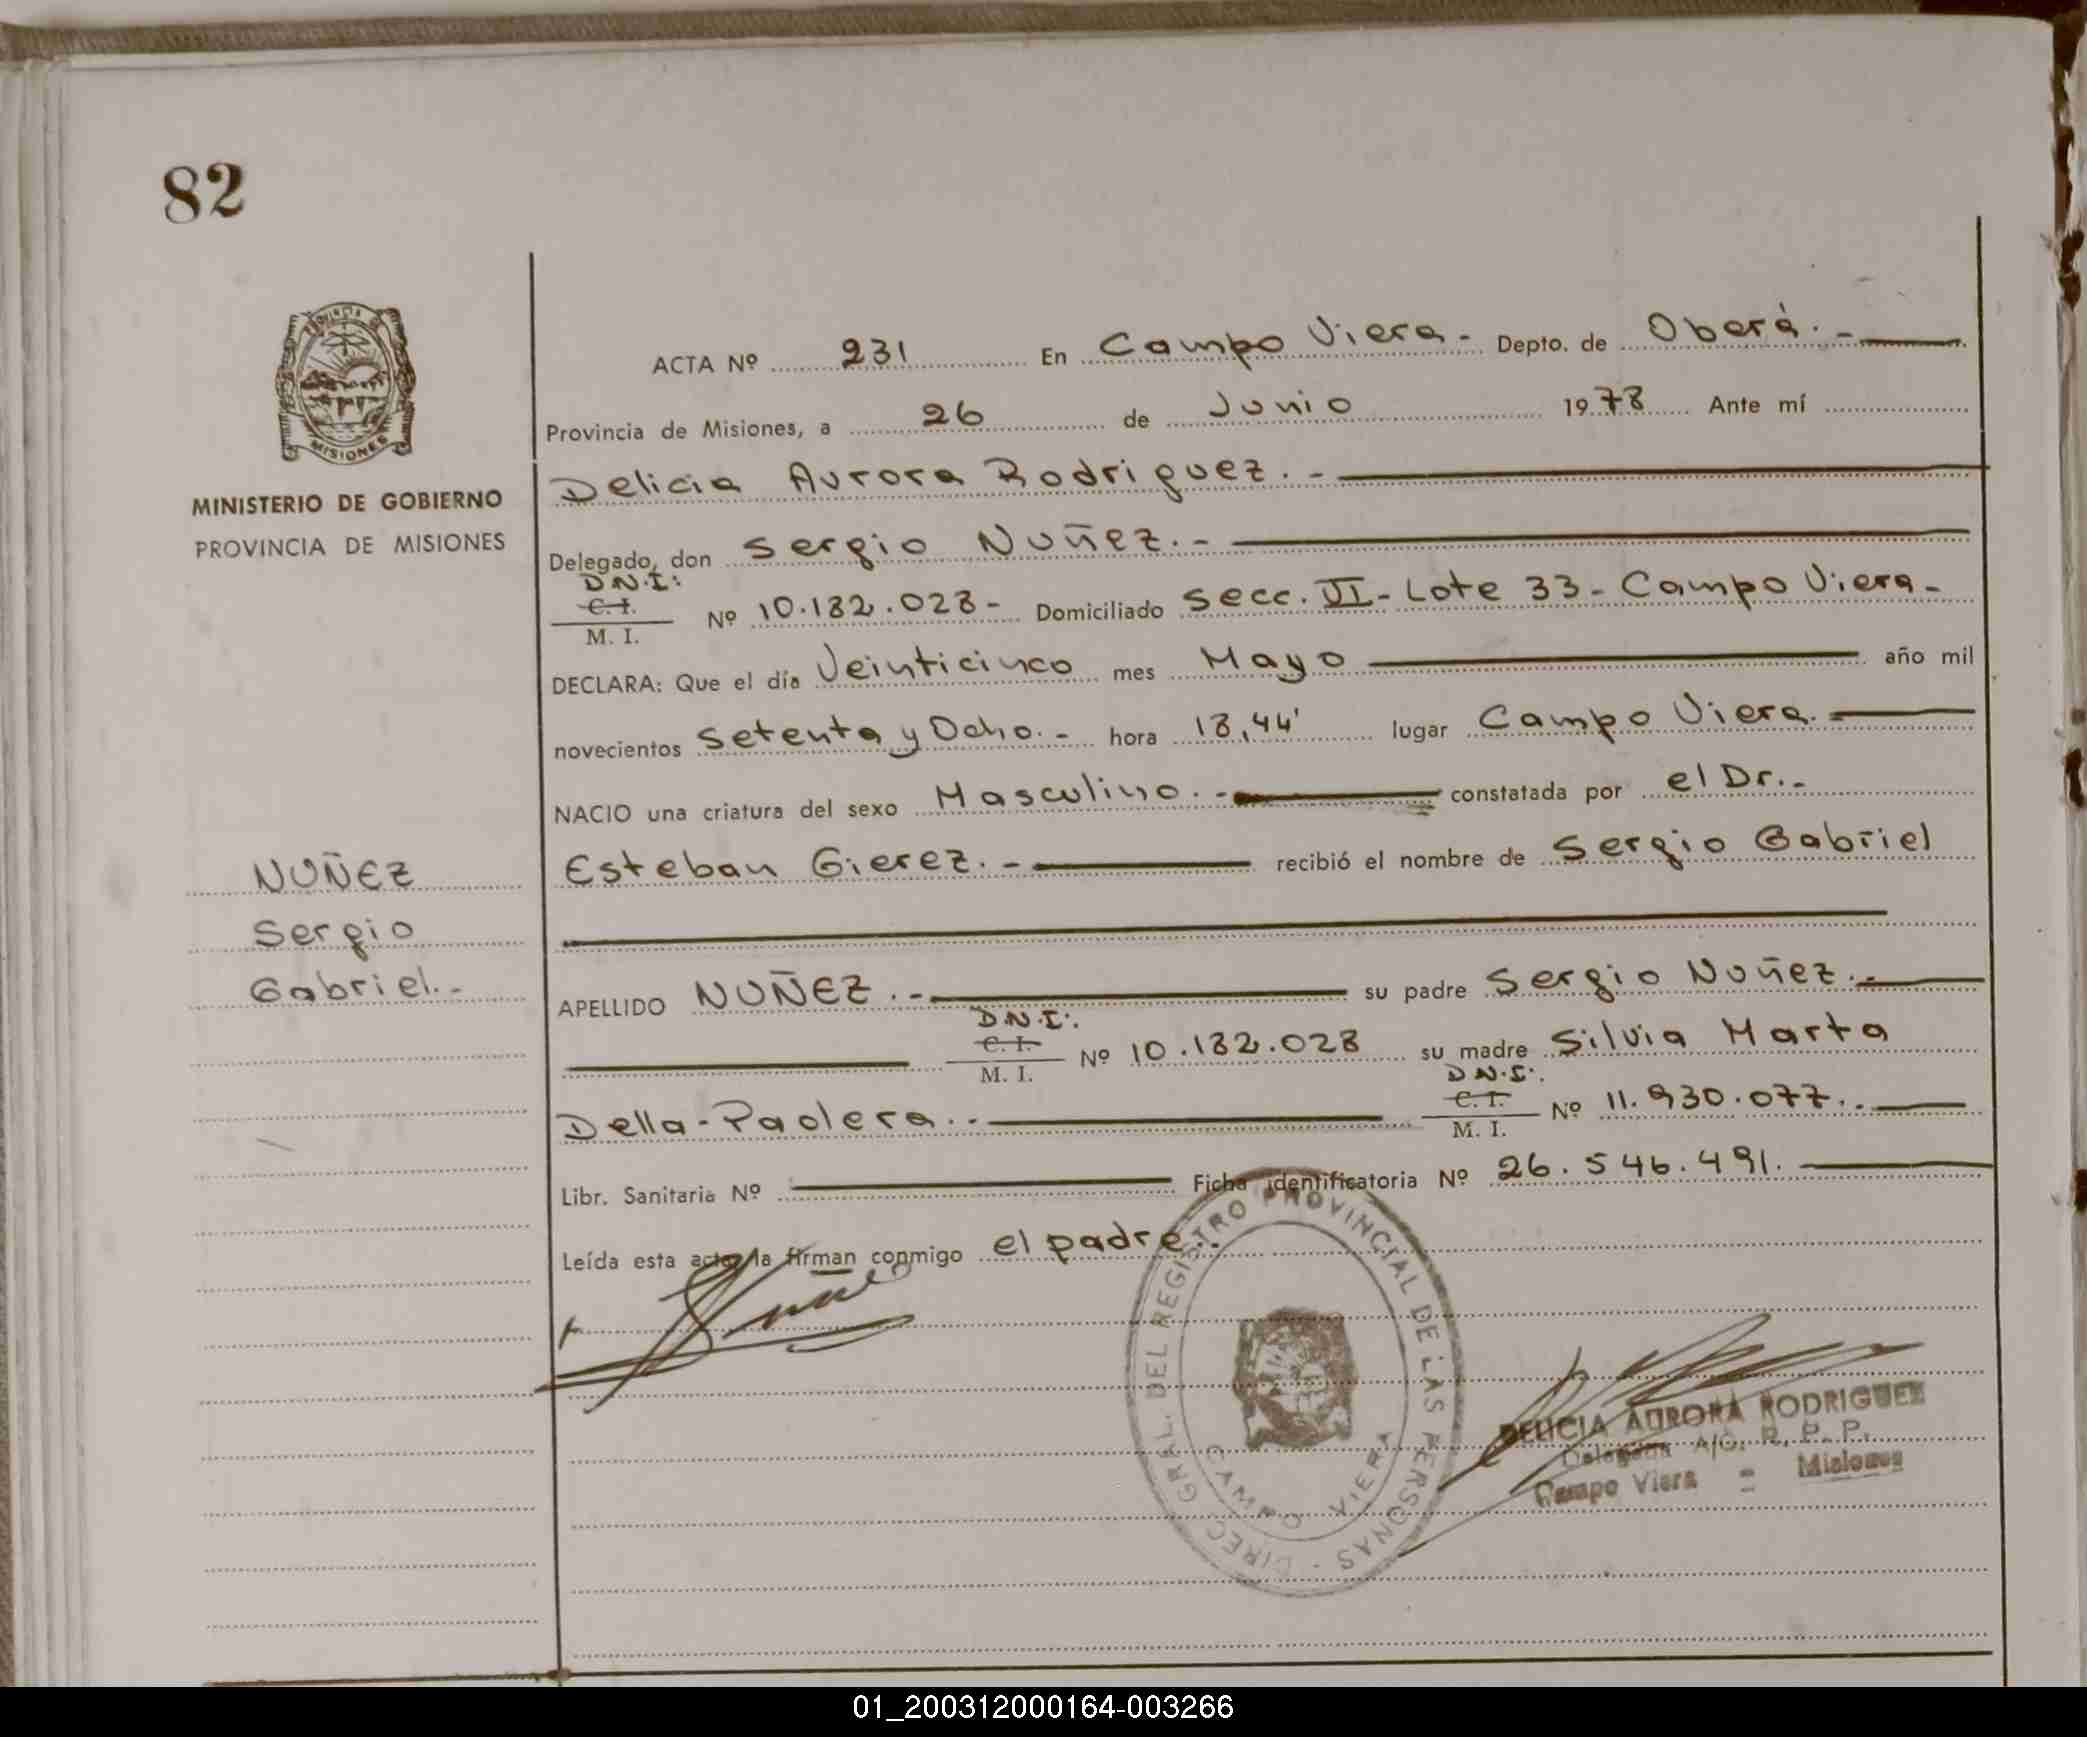 82
PROVINCIA DE
MISIONES
MINISTERIO DE GOBIERNO
PROVINCIA DE MISIONES
NUÑEZ
Sergio
Gabriel.-
ACTA Nº 231 En Campo Viera.- Depto. de Oberá.-
Provincia de Misiones, a 26 de Junio 1978 Ante mí
Delicia Aurora Rodriguez.-
Delegado, don Sergio Nuñez.-
D.N.I:
C. I.
M. I. Nº 10.182.028- Domiciliado Secc. VI- Lote 33- Campo Viera-
DECLARA: Que el día Veinticinco mes Mayo año mil
novecientos Setenta y Ocho.- hora 18,44' lugar Campo Viera.-
NACIO una criatura del sexo Masculino.- constatada por el Dr.-
Esteban Gierez.- recibió el nombre de Sergio Gabriel
APELLIDO NUÑEZ.- su padre Sergio Nuñez.-
D.N.I:.
C. I.
M. I. Nº 10.182.028 su madre Silvia Marta
Della-Paolera.- D.N.I:.
C. I.
M. I. Nº 11.930.077.-
Libr. Sanitaria Nº Ficha identificatoria Nº 26.546.491.
Leída esta acta, la firman conmigo el padre.-
DIREC. GRAL. DEL REGISTRO PROVINCIAL DE LAS PERSONAS -
CAMPO VIERA
DELICIA AURORA RODRIGUEZ
Delegada A/C. R. P. P.
Campo Viera - Misiones
01_200312000164-003266